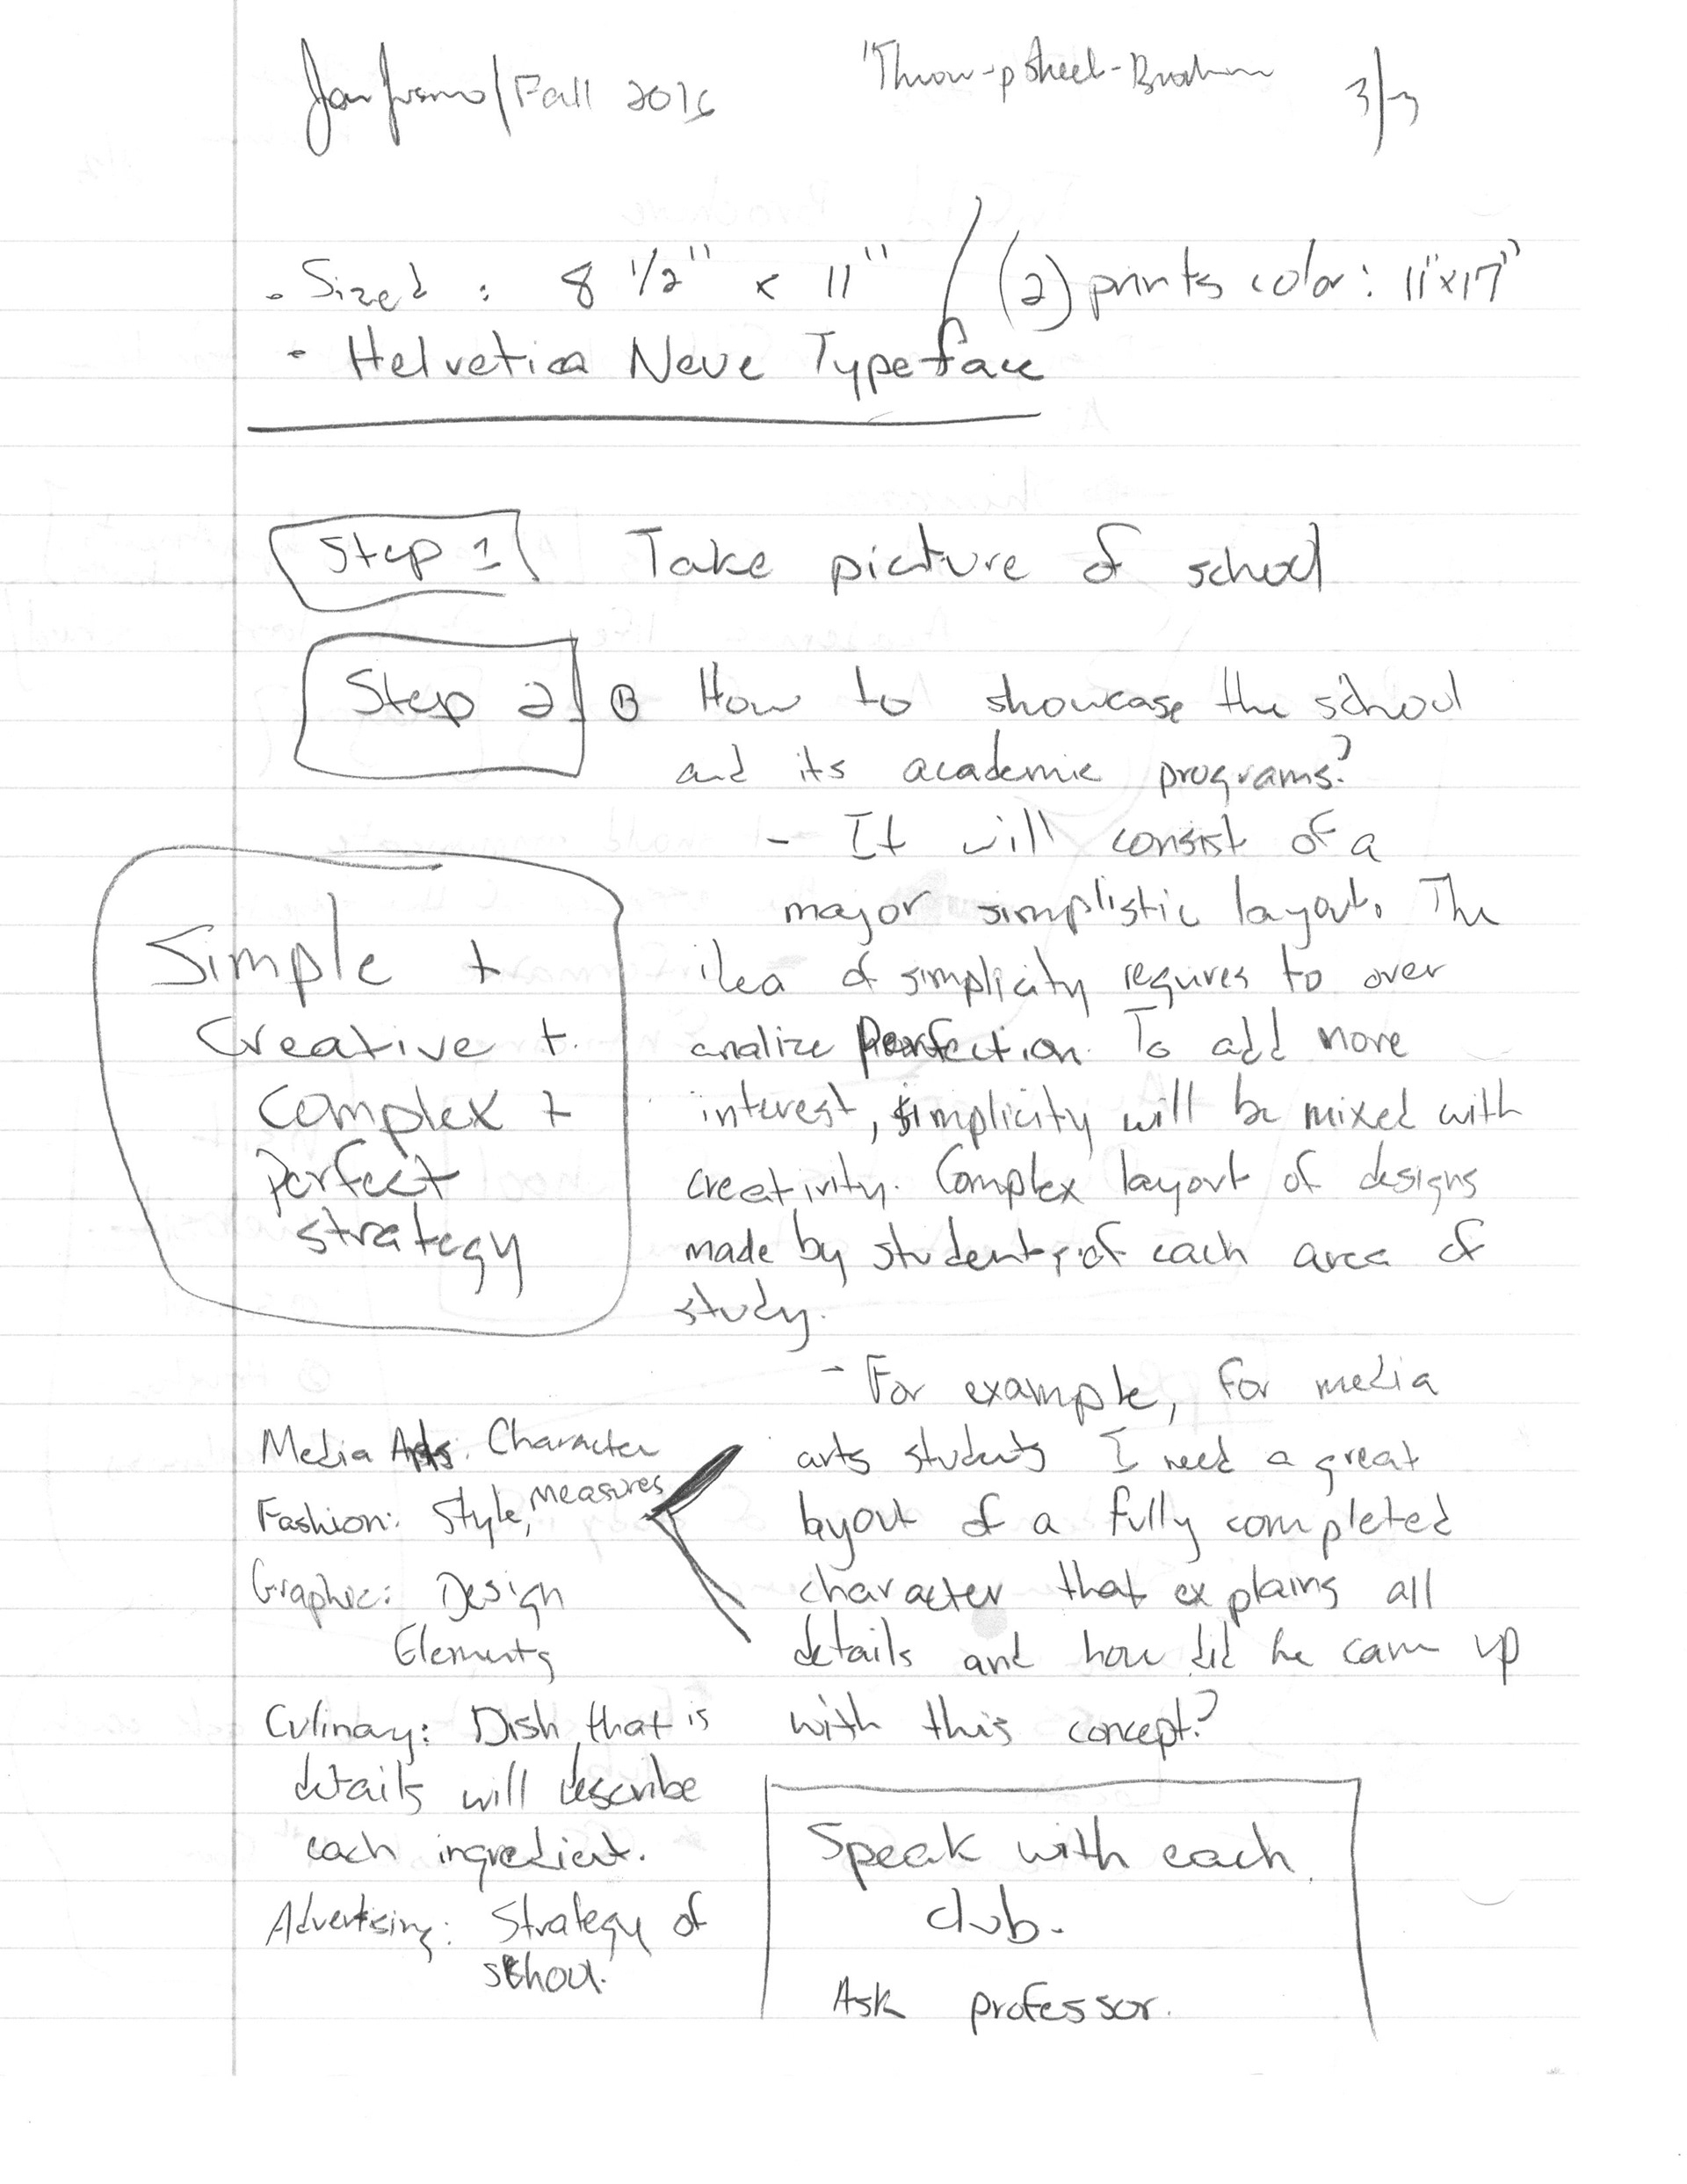 Fall 2016
3/3
• Sized : 8 1/2" x 11" / (2) prints color: 11"x17"
• Helvetica Neue Typeface
Step 1 Take picture of school
Step 2 How to showcase the school
and its academic programs?
- It will consist of a
major simplistic layout. The
idea of simplicity requires to over
analize perfection. To add more
interest, simplicity will be mixed with
creativity. Complex layout of designs
made by students of each area of
study.
Simple +
Creative +
Complex +
Perfect
strategy
- For example, for media
arts students I need a great
layout of a fully completed
character that explains all
details and how did he came up
with this concept?
Media Arts: Character
Fashion: Style, measures
Graphic: Design
Elements
Culinary: Dish, that is
details will describe
each ingredient.
Advertising: Strategy of
school.
Speak with each
club.
Ask professor.